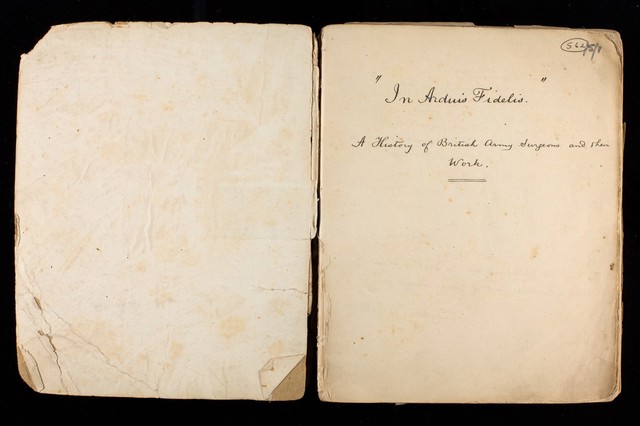 562/5/1
" In Arduis Fidelis. "
A History of British Army Surgeons and their
Work.